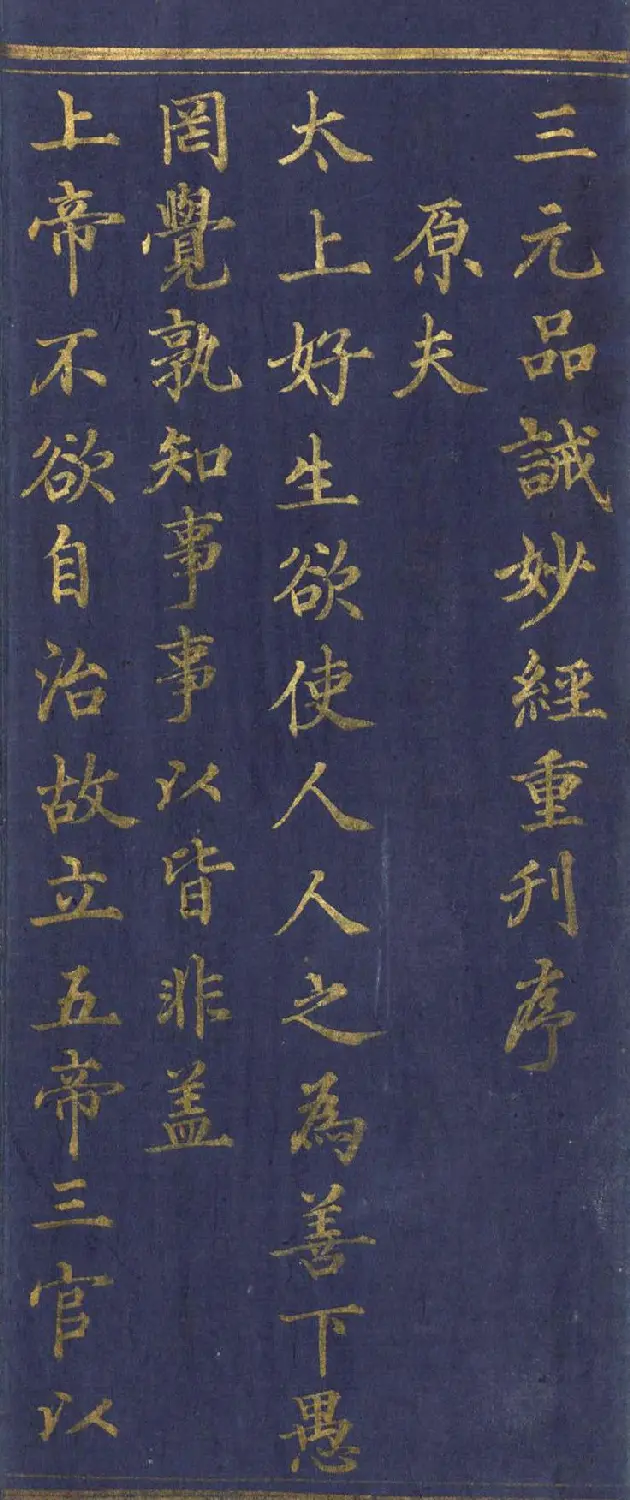 三元品誡妙經重刋序
原夫
太上好生欲使人人之為善下愚
罔覺孰知事事以皆非盖
上帝不欲自治故立五帝三官以